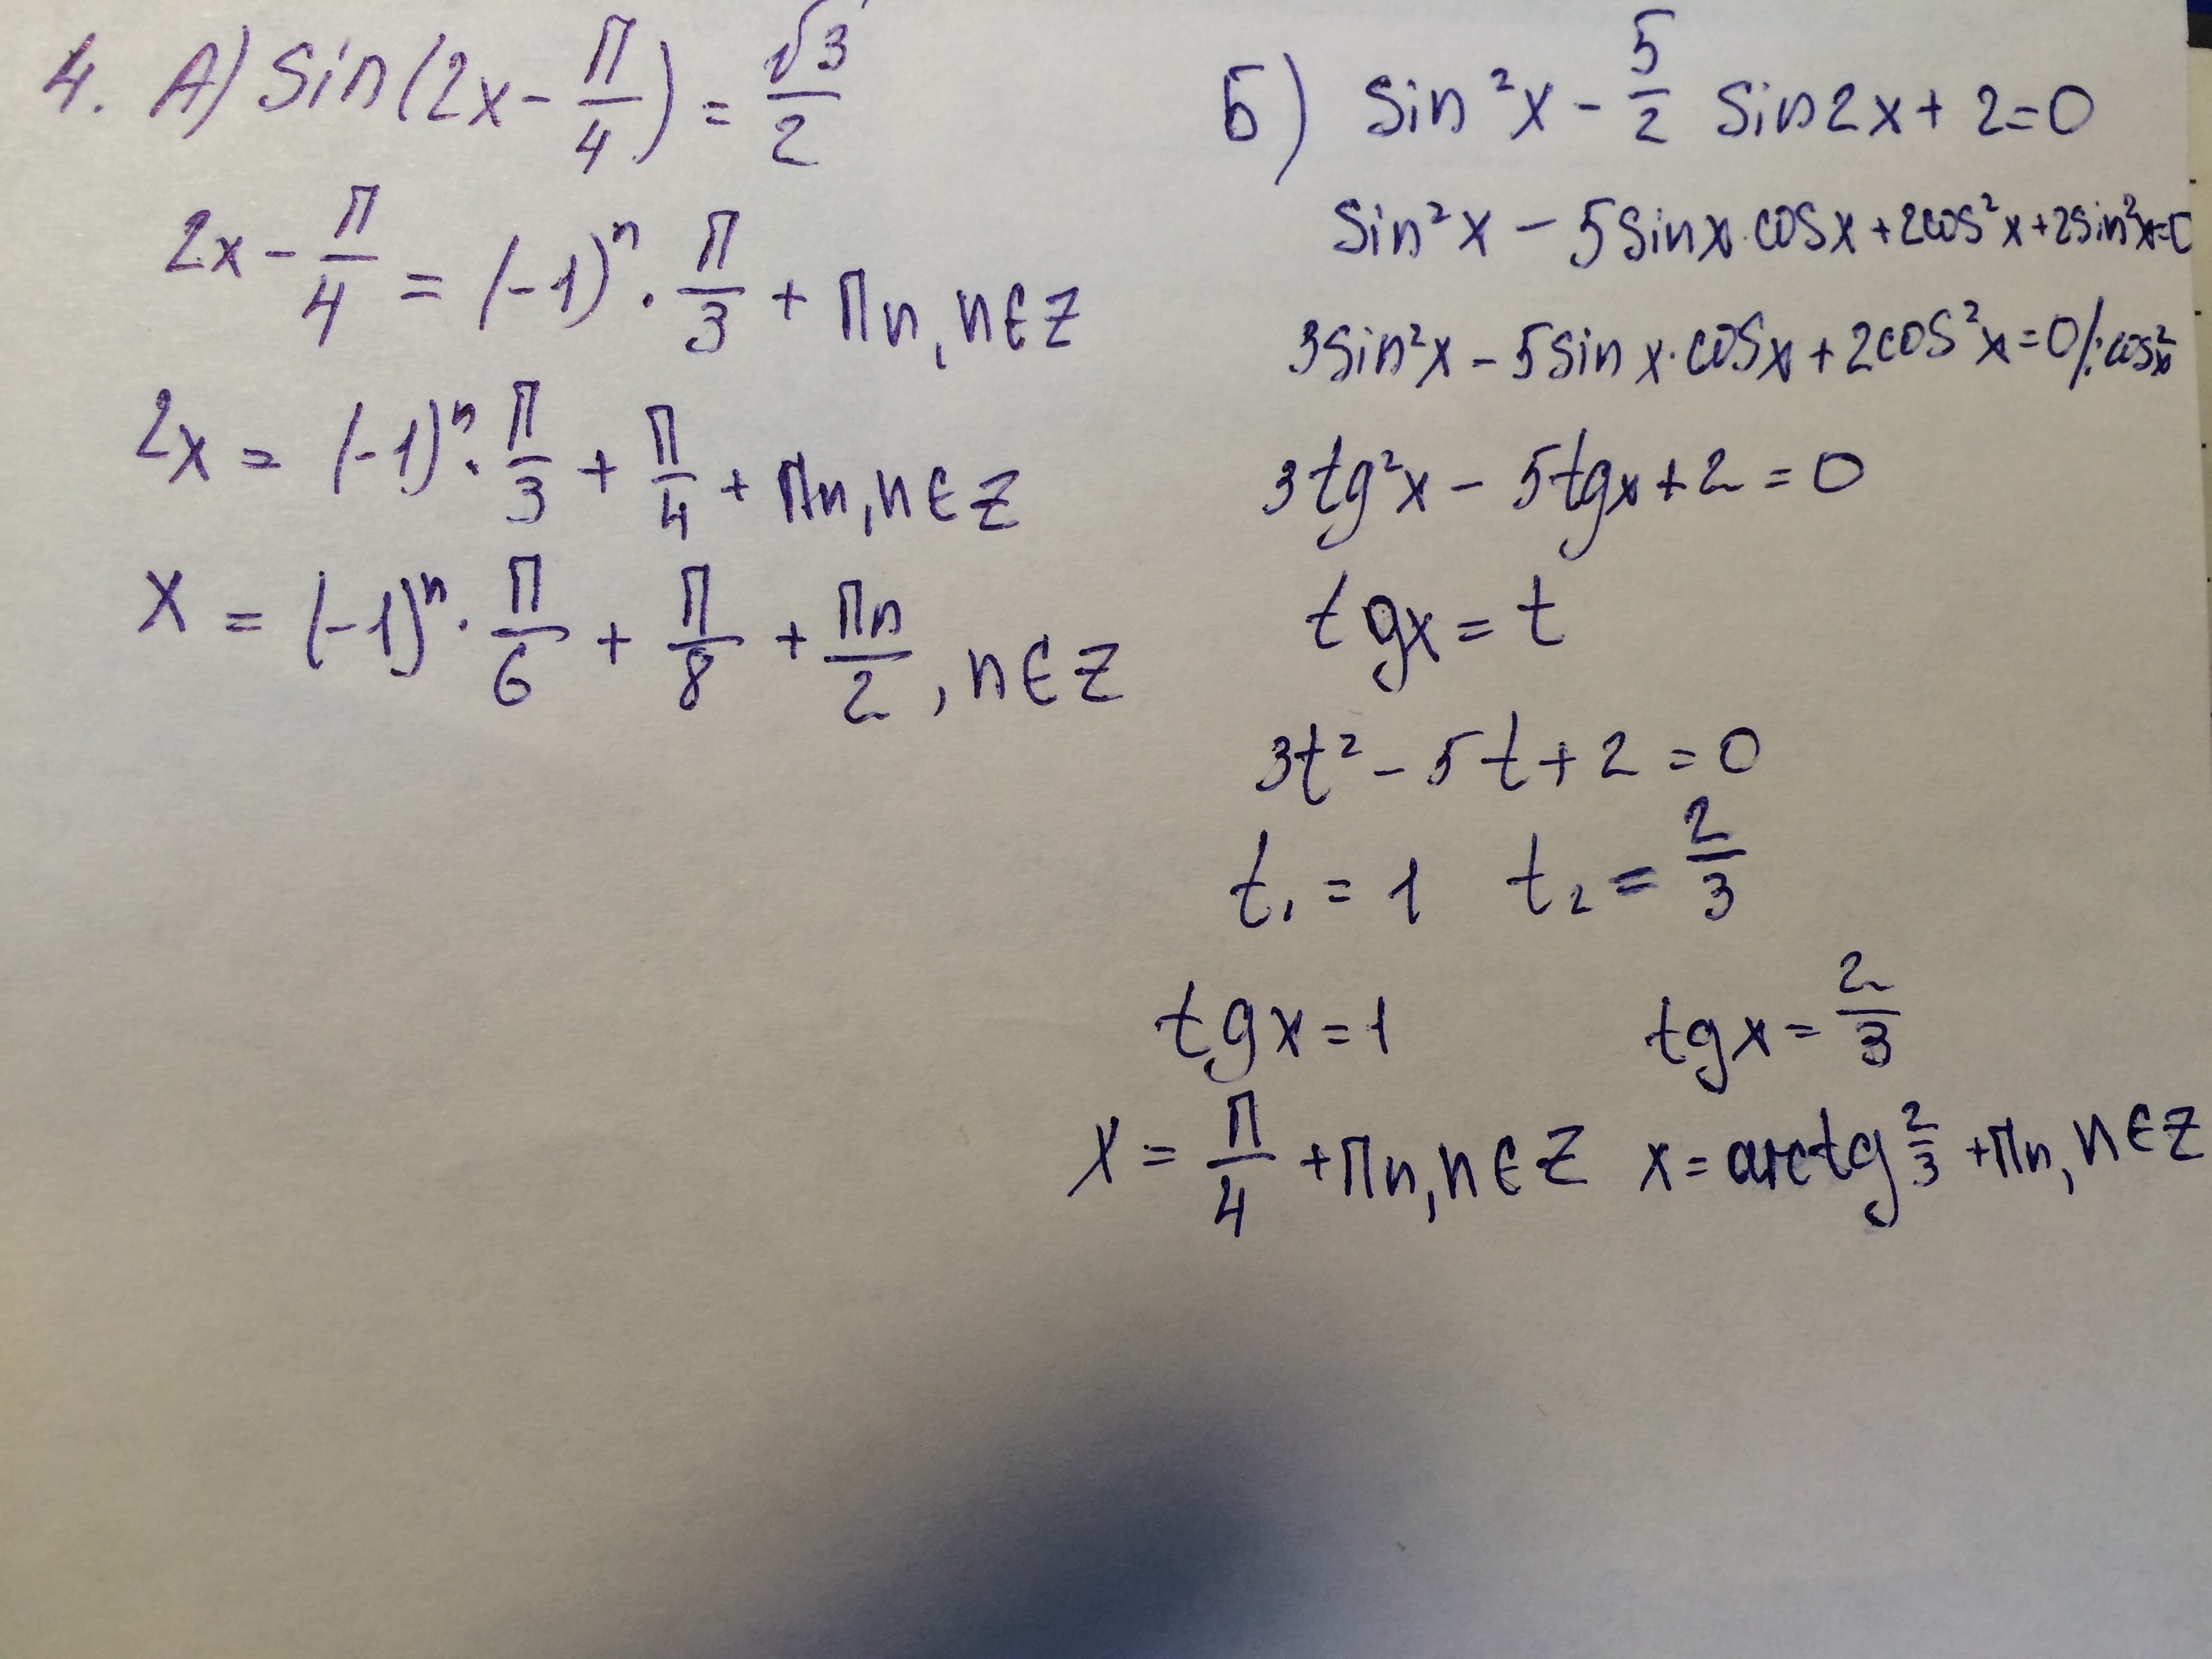 4. А) sin(2x - π/4) = √3/2
2x - π/4 = (-1)ⁿ · π/3 + πn, n∈Z
2x = (-1)ⁿ · π/3 + π/4 + πn, n∈Z
x = (-1)ⁿ · π/6 + π/8 + πn/2, n∈Z
Б) sin²x - 5/2 sin2x + 2 = 0
sin²x - 5sinx·cosx + 2cos²x + 2sin²x = 0
3sin²x - 5sinx·cosx + 2cos²x = 0 /: cos²x
3tg²x - 5tgx + 2 = 0
tgx = t
3t² - 5t + 2 = 0
t₁ = 1 t₂ = 2/3
tgx = 1 tgx = 2/3
x = π/4 + πn, n∈Z x = arctg 2/3 + πn, n∈Z